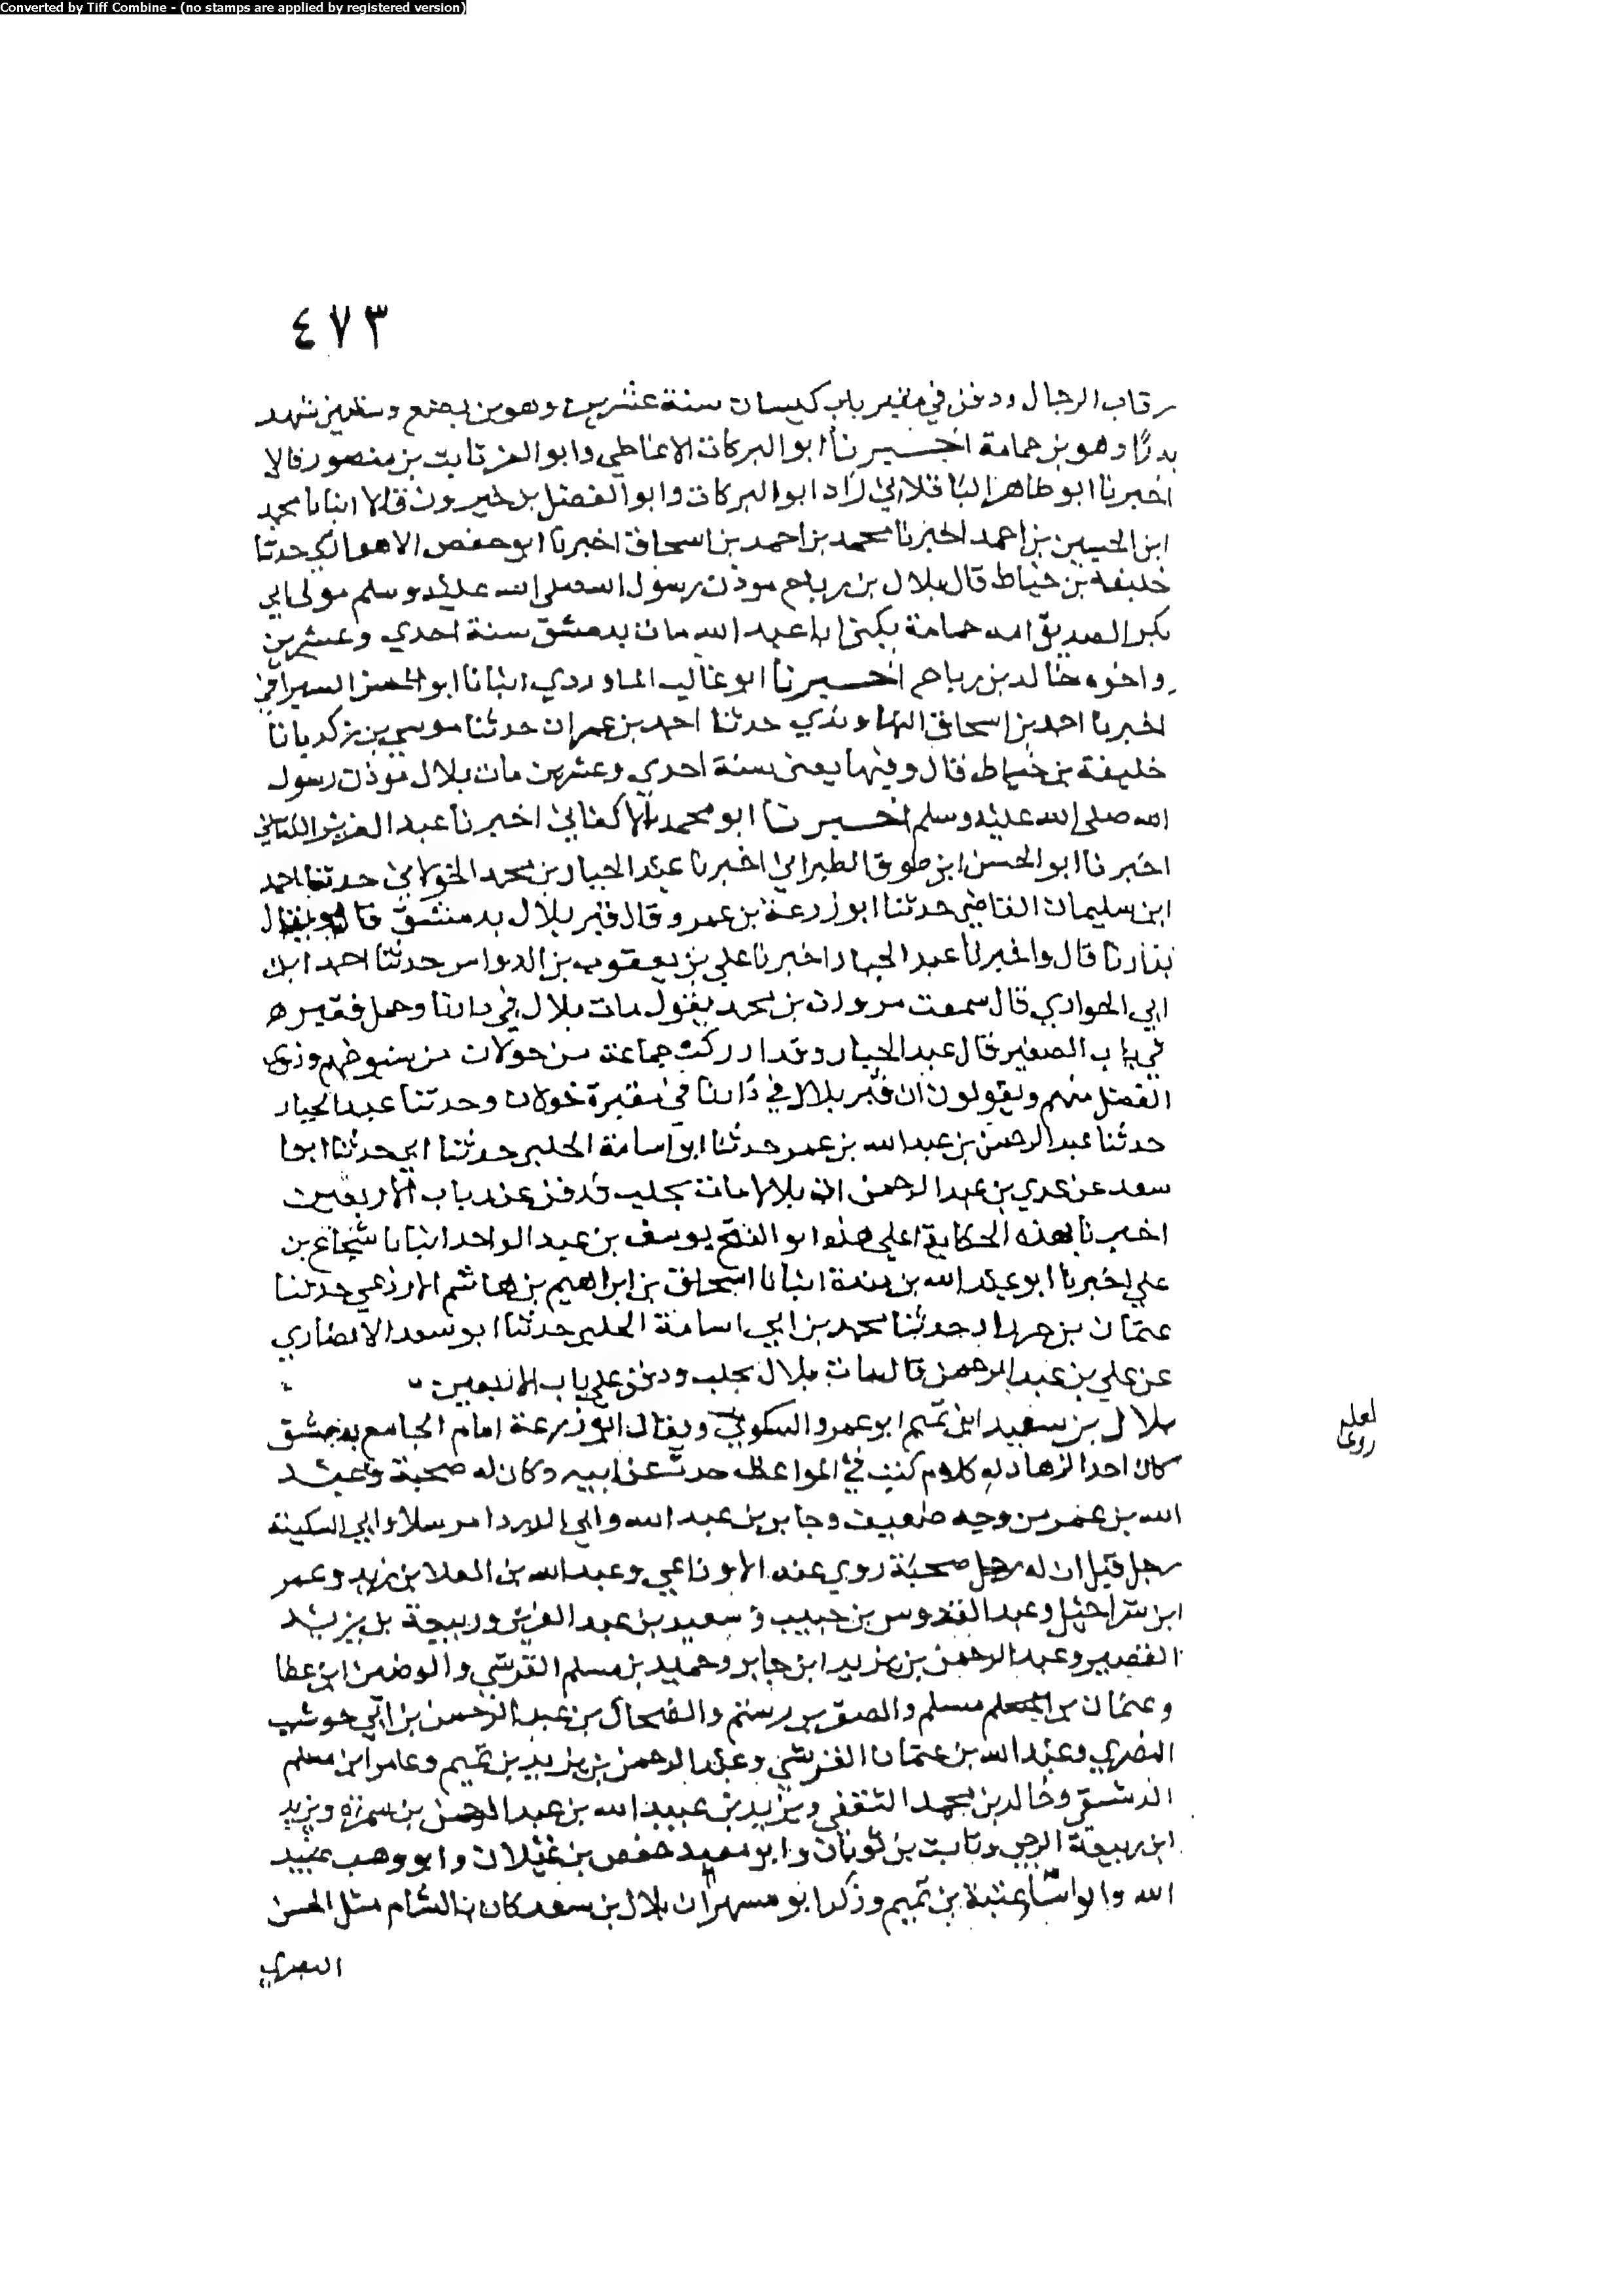 Converted by Tiff Combine - (no stamps are applied by registered version)
٤٧٣
رقاب الرجال ودفن في مقبر باب كيسان سنة عشرين وهو بن بضع وستين شهد
بدرًا وهو بن حمامة اخبرنا ابو البركات الانماطي وابو العز ثابت بن منصور قالا
اخبرنا ابو طاهر الباقلاني زاد ابو البركات وابو الفضل بن خيرون قالا انبانا محمد
ابن الحسين بن احمد اخبرنا محمد بن احمد بن اسحاق اخبرنا ابو حفص الاهوازي حدثنا
خليفة بن خياط قال بلال بن رباح موذن رسول الله صلى الله عليه وسلم مولى ابي
بكر الصديق امه حمامة يكنى ابا عبد الله مات بدمشق سنة احدي وعشرين
واخوه خالد بن رباح اخبرنا ابو غالب الماوردي انبانا ابو الحسن السيرافي
اخبرنا احمد بن اسحاق النهاوندي حدثنا احمد بن عمران حدثنا موسي بن زكريا نا
خليفة بن خياط قال وفيها يعني سنة احدي وعشرين مات بلال موذن رسول
الله صلى الله عليه وسلم اخبرنا ابو محمد الاكفاني اخبرنا عبد العزيز الكتاني
اخبرنا ابو الحسن ابن طوق الطبراني اخبرنا عبد الجبار بن محمد الخولاني حدثنا احمد
ابن سليمان القاضي حدثنا ابو زرعة بن عمرو قال قبر بلال بدمشق قال ويقال
بدارنا قال واخبرنا عبد الجبار اخبرنا علي بن يعقوب بن الدواس حدثنا احمد ابن
ابي الحواري قال سمعت مروان بن محمد يقول مات بلال في داريا وحمل فقبره
في باب الصغير قال عبد الجبار وقد ادركت جماعة من خولان من شيوخهم وذوي
الفضل منهم ويقولون ان قبر بلال في داريا في مقبرة خولان وحدثنا عبد الجبار
حدثنا عبد الرحمن بن عبد الله بن عمر حدثنا ابو اسامة الحلبي حدثنا ابي حدثنا ابوا
سعد عن عدي بن عبد الرحمن ان بلالا مات بحلب ودفن عند باب الاربعين
اخبرنا بهذه الحكاية اعلي هذا ابو الفتح يوسف بن عبد الواحد انبانا شجاع بن
علي اخبرنا ابو عبد الله بن مندة انبانا اسحاق بن ابراهيم بن هاشم الاذرعي حدثنا
عثمان بن خرزاد حدثنا محمد بن ابي اسامة الحلبي حدثنا ابو سعد الانصاري
عن علي بن عبد الرحمن قال مات بلال بحلب ودفن علي باب الاربعين
بلال بن سعيد ابن تميم ابو عمرو السكوني ويقال ابو زرعة امام الجامع بدمشق
لعله
روى
كان احد الزهاد له كلام كثير في المواعظ حدث عن ابيه وكان له صحبة وعبد
الله بن عمر من وجه ضعيف وجابر بن عبد الله وابي الدرداء مرسلا وابي السكينة
رجل قيل ان له صحبة روي عنه الاوزاعي وعبد الله بن العلا بن زيد وعمر
ابن شراحيل وعبد القدوس بن حبيب وسعيد بن عبد العزيز وربيعة بن يزيد
القصير وعبد الرحمن بن يزيد ابن جابر وحميد بن مسلم القرشي والوضين ابن عطا
وعثمان بن مسلم والصقر بن رستم والضحاك بن عبد الرحمن بن ابي حوشب
النصري وعبد الله بن عثمان القرشي وعبد الرحمن بن يزيد بن تميم وعامر ابن مسلم
الدمشقي وخالد بن محمد الثقفي ويزيد بن عبيد الله بن عبد الرحمن بن سمرة ويزيد
ابن ربيعة الرحبي وثابت بن ثوبان وابو معيد حفص بن غيلان وابو وهب عبيد
الله وابوا عتبة بن تميم وذكر ابو مسهر ان بلال بن سعد كان بالشام مثل الحسن
البصري